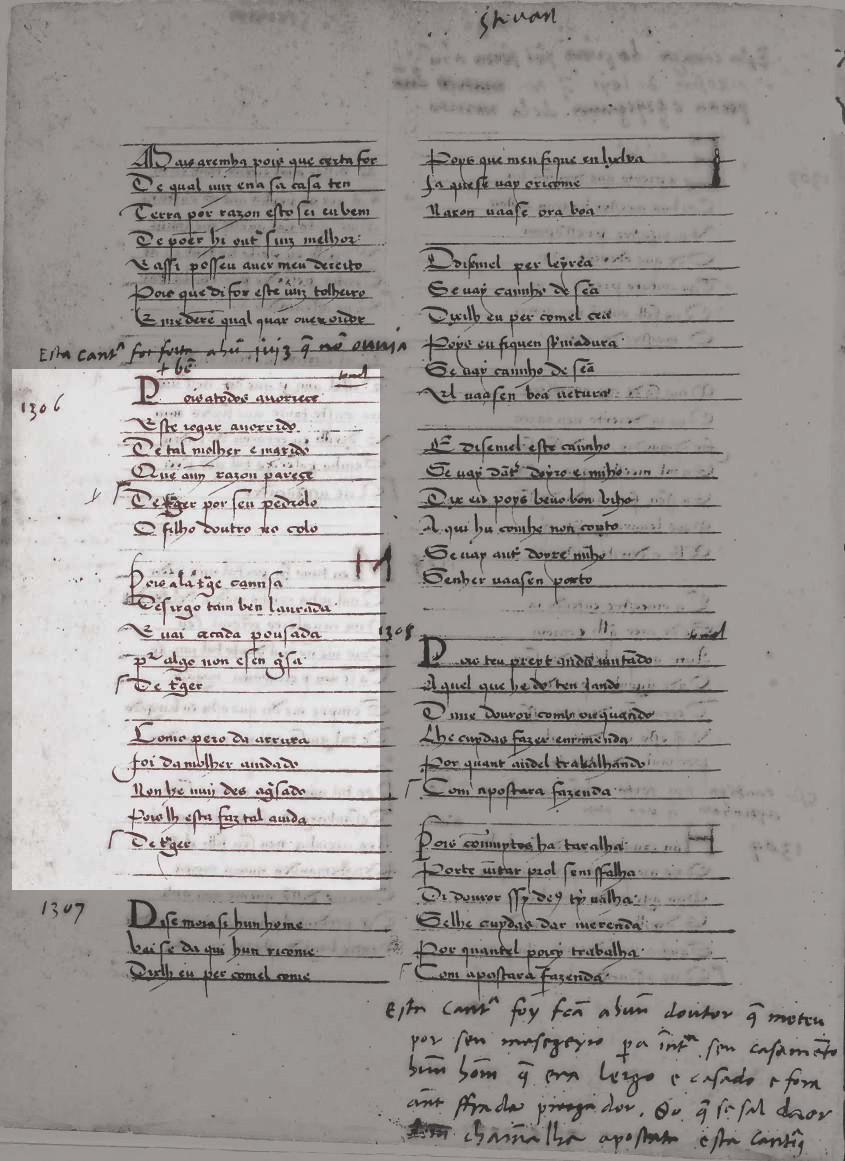 Stevan
Mais aremha pois que certa for
De qual iuiz en a sa casa ten
Terra por razon esto sei eu bem
De poer hi outr iuiz melhor
E assi posseu auer meu dereito
Pois que di for este iuiz tolheito
E me derẽ qual quer ouuidor
Esta cantᵃ foi feita a hũ juiz q̃ nõ ouuia
+ bẽ
1306
tornel
Pois a todos auorrece
Este iogar auorrido
De tal molher e marido
Que amĩ razon pareçe
De trager por seu pedrolo
O filho doutro no colo
Pois ala trage camisa
De sirgo tam ben laurada
E uai a cada pousada
pr algo non e sen gisa
De trager
Como pero da arruda
Foi da molher aiudado
Non he muy des agisado
Pois lh esta faz tal aiuda
De trager
1307
Dise morasi hun home
Vai se da qui hun ricome
Dixlh eu per comel come
Poys que meu fique en
Ja que se uay o ricome
Naron uaa se ora boa
E disemel per leyrea
Se uay caminho de sea
Dixilh eu per comel cea
Poys eu fiquen
Se uay caminho de sea
El uaa sen boa uẽtura
E disemel este caminho
Se uay dãtr doyro e minho
Dix eu poys beuo bon uinho
A qui hu comhe non conto
Se uay antr doyre minho
Senher uaa sen porto
1308
tornel
Pois teu preyt anda iuntãdo
Aquel que he do teu bando
Di me douror como ou quando
Lhe cuydas fazer enmenda
Por quant andel trabalhando
Com apostara fazenda
Pois contra ha taralha
Porte iũtar prol sen ffalha
Di douror ssy deꝯ ty ualha
Se lhe cuydas dar merenda
Por quantel pony trabalha
Com apostara fazenda
Esta Cantᵃ foy fcã a hũu doutor q̃ meteu
por seu mesegeyro pa seu casamẽto
hũu homẽ q̃ era lergo e casado e fora
ãnt ffrade preegador. So q̃
chamalha apostata esta Cantiᵍ